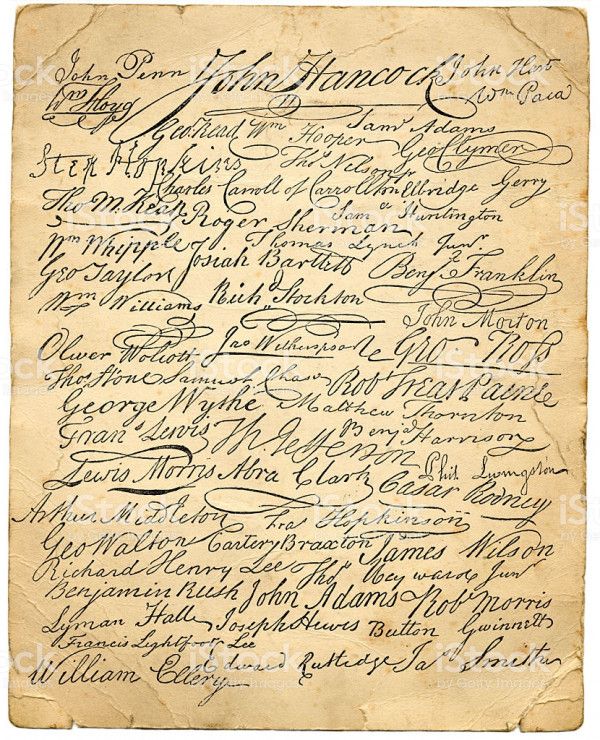 John Penn John Hancock John Hart
Wm Floyd Wm Paca
Geo Read Wm Hooper Saml Adams Geo Clymer
Step Hopkins Thos Nelson jr
Charles Carroll of Carrollton Elbridge Gerry
Thos M Kean Roger Sherman Saml Huntington
Wm Whipple Josiah Bartlett Thomas Lynch Junr.
Geo Taylor Benj Franklin
Wm Williams Richd Stockton John Morton
Oliver Wolcott Jno Witherspoon Geo Ross
Thos Stone Samuel Chase Robt Treat Paine
George Wythe Matthew Thornton
Fran Lewis Th Jefferson Benj Harrison
Lewis Morris Abra Clark Phil Livingston
Cæsar Rodney
Arthur Middleton Fras Hopkinson
Geo Walton Carter Braxton James Wilson
Richard Henry Lee Thos Heyward Junr
Benjamin Rush John Adams Robt Morris
Lyman Hall Joseph Hewes Button Gwinnett
Francis Lightfoot Lee
William Ellery Edward Rutledge Jas Smith
iStock
by Getty Images